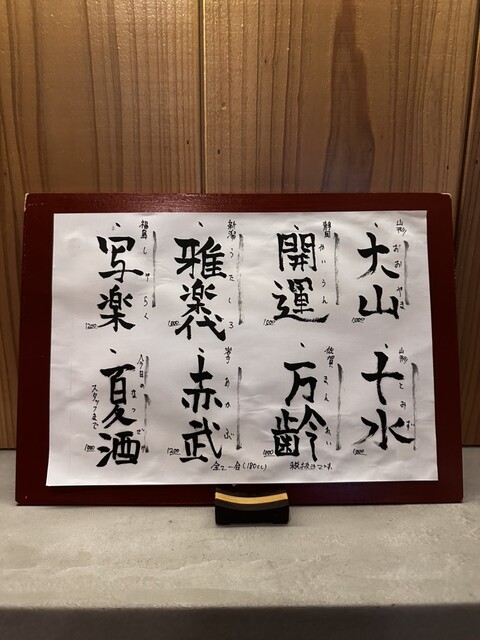 山形 おおやま
大山
1000
静岡 かいうん
開運
1200
新潟 うたしろ
雅楽代
1200
福島 しゃらく
写楽
1200
山形 とみず
十水
1200
佐賀 まんれい
万齢
1000
岩手 あかぶ
赤武
1300
今日のなつざけ
夏酒
スタッフまで
全て一合(180cc)
税抜きです。